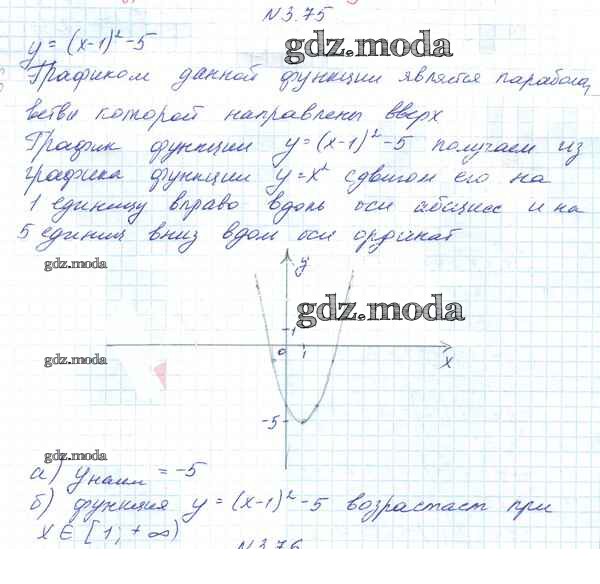 N 3.75
y = (x-1)² - 5
gdz.moda
Графиком данной функции является парабола,
ветви которой направлены вверх
График функции y=(x-1)² -5 получаем из
графика функции y=x² сдвигом его на
1 единицу вправо вдоль оси абсцисс и на
5 единиц вниз вдоль оси ординат
gdz.moda
y
gdz.moda
1
gdz.moda
0 1 x
-5
gdz.moda
а) yнаим = -5
gdz.moda
б) функция y = (x-1)² -5 возрастает при
x ∈ [1; +∞)
N 3.76